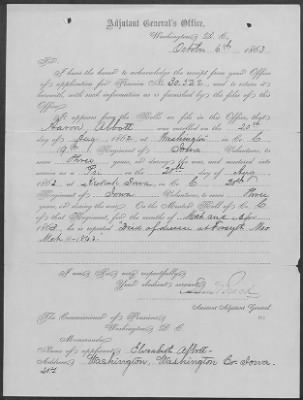 Adjutant General's Office,
Washington, D. C.
October 6th, 1863
Sir:
I have the honor to acknowledge the receipt from your Office
of application for Pension No. 30.322, and to return it
herewith, with such information as is furnished by the files of this
Office.
It appears from the Rolls on file in this Office, that
Aaron Abbott was enrolled on the 20th
day of Aug, 1862, at Washington in Co. C,
19th Regiment of Iowa Volunteers, to serve
Three years, or during the war, and mustered into
service as a Pri on the day of
1862, at Iowa, in Co. C,
Regiment of Iowa Volunteers, to serve Three
years, or during the war. On the Muster Roll of Co. C
of that Regiment, for the months of Mch and Apr,
1863, he is reported "Died of disease at Forsyth Mo
Mch 1863.
I am, Sir, very respectfully,
Your obedient servant,
Assistant Adjutant General.
The Commissioner of Pensions,
Washington, D. C.
Memoranda:
Name of applicant, Elizabeth Abbott
Address, Washington, Washington Co. Iowa